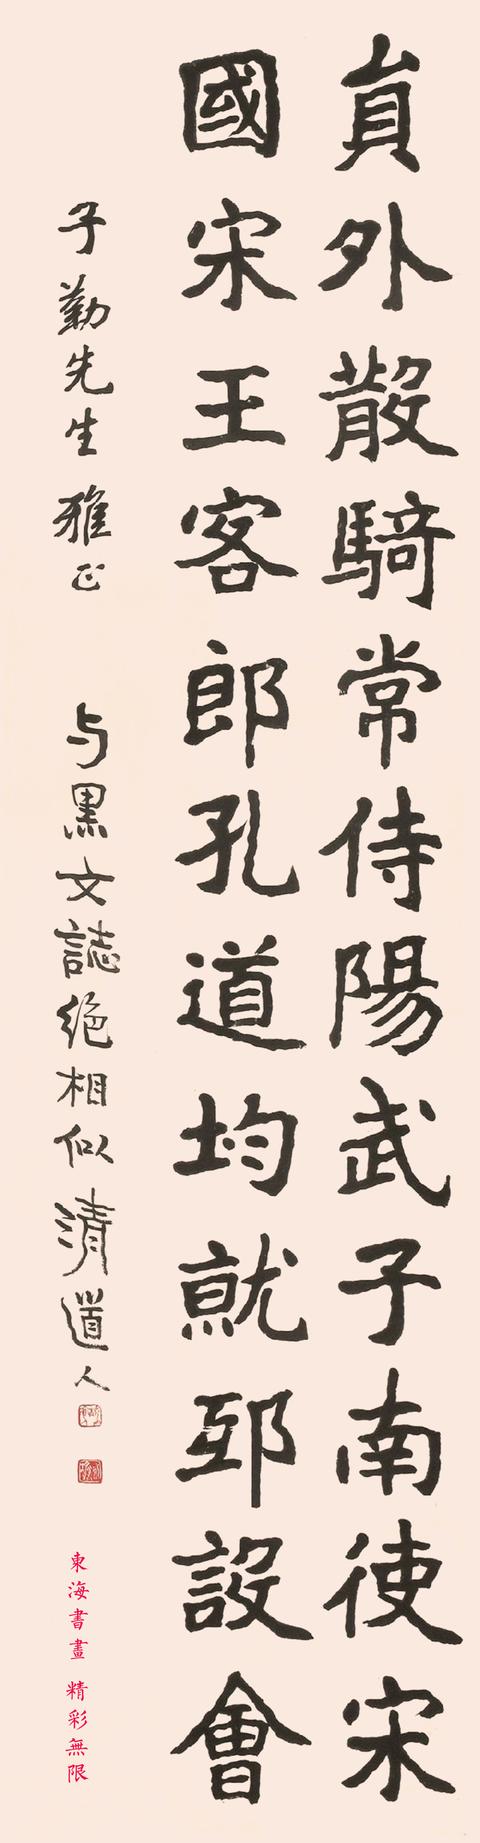 貟外散騎常侍陽武子南使宋
國宋王客郎孔道均就邸設會
子勤先生 雅正 与黑文誌絕相似 清道人
東海書畫 精彩無限